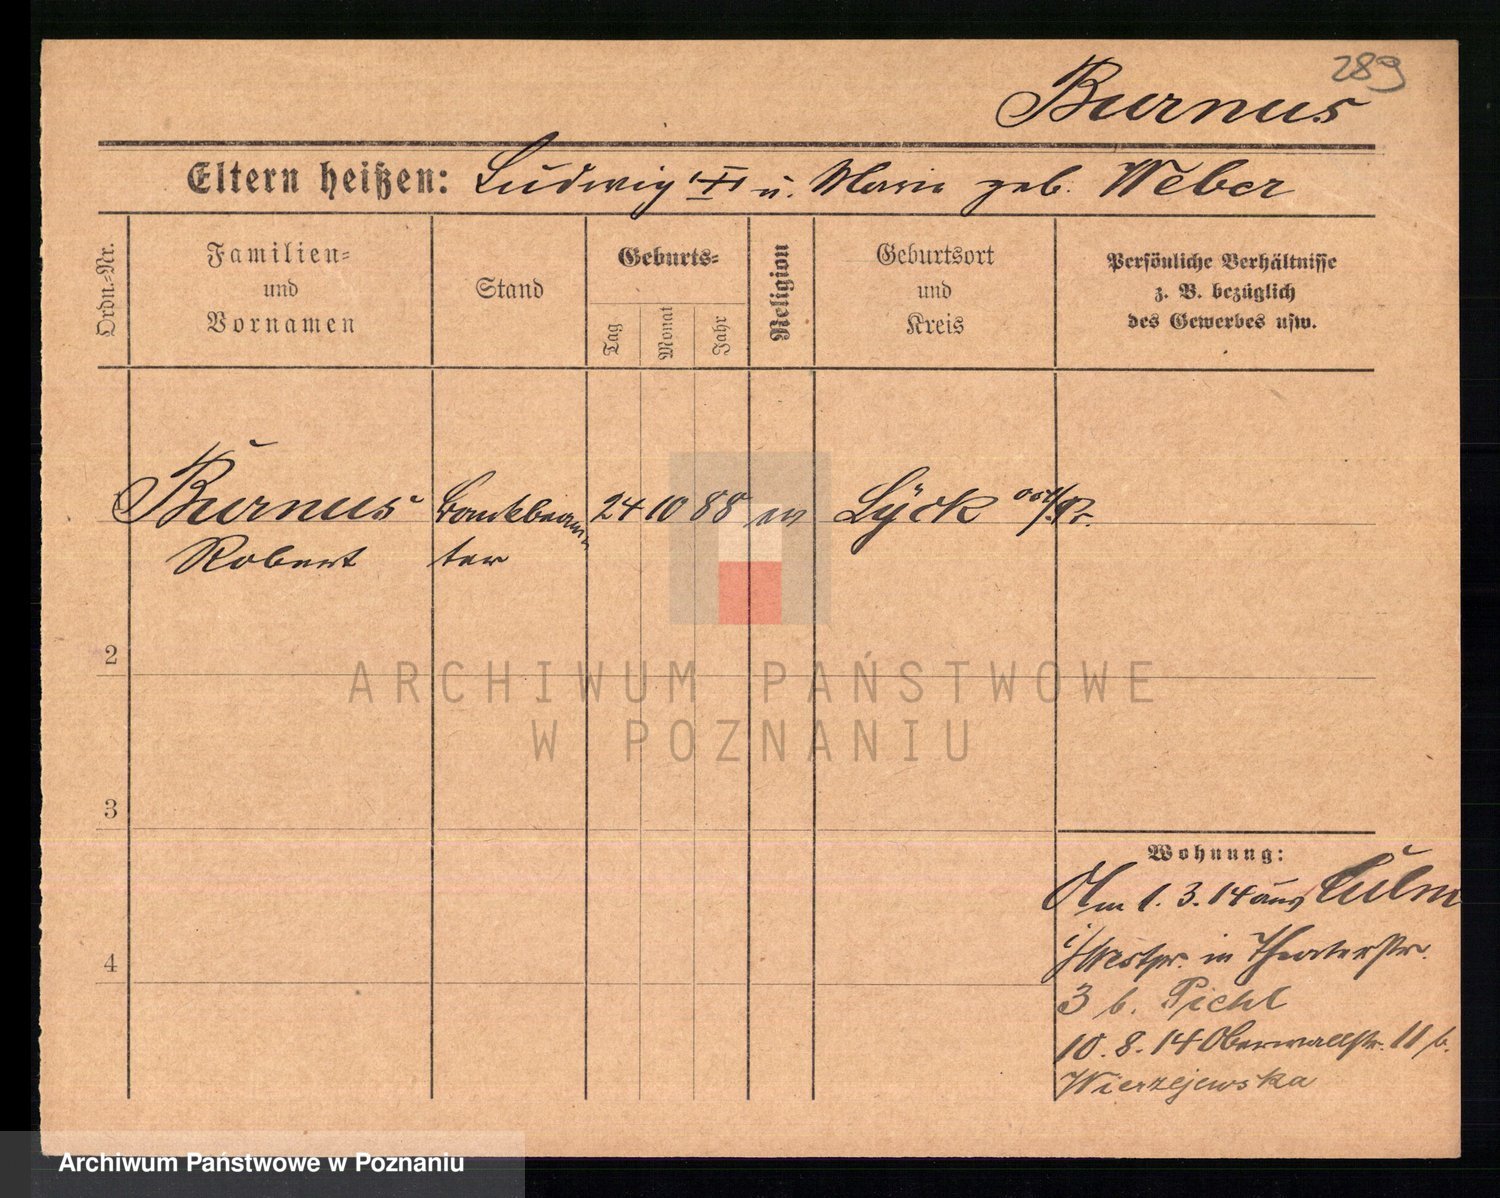 289
Burnus
Eltern heißen: Ludwig u. Marie geb. Weber
Ordn.-Nr.
Familien-
und
Vornamen
Stand
Geburts-
Tag
Monat
Jahr
Religion
Geburtsort
und
Kreis
Persönliche Verhältnisse
z. B. bezüglich
des Gewerbes usw.
Burnus Bankbeam- 24 10 88 ev Lyck
Robert ter
2
3
4
Wohnung:
Am 1. 3. 14 aus Culm
i/Westpr. in Theaterstr.
3 b. Pichl
10. 8. 14 Oberwallstr. 11 b.
Wierzejewska
ARCHIWUM PAŃSTWOWE
W POZNANIU
Archiwum Państwowe w Poznaniu